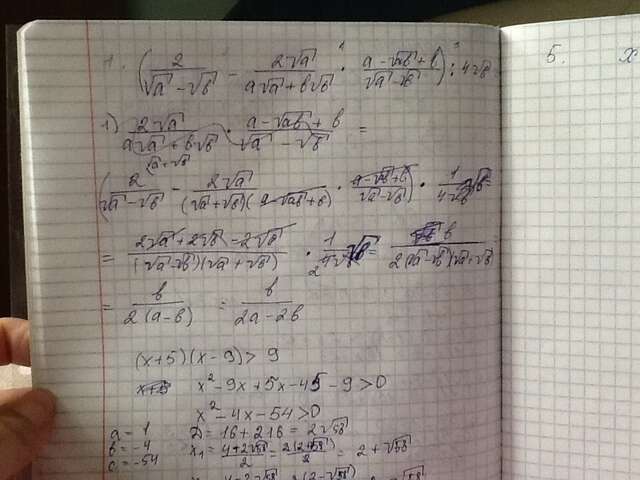 1. (2/(√a - √b) - 2√a/(a√a + b√b) · (a - √ab + b)/(√a - √b)) : 4√b
5. x
1) 2√a/(a√a + b√b) · (a - √ab + b)/(√a - √b) =
(√a + √b
(2/(√a - √b) - 2√a/((√a + √b)(a - √ab + b)) · (a - √ab + b)/(√a - √b)) · 1/4√b =
= (2√a + 2√b - 2√a)/((√a - √b)(√a + √b)) · 1/4√b = b/(2(√a - √b)(√a + √b)) =
= b/(2(a - b)) = b/(2a - 2b)
(x+5)(x-9) > 9
x² - 9x + 5x - 45 - 9 > 0
x² - 4x - 54 > 0
a = 1 D = 16 + 216 = 2√58
b = -4 x₁ = (4 + 2√58)/2 = 2(2+√58)/2 = 2 + √58
c = -54